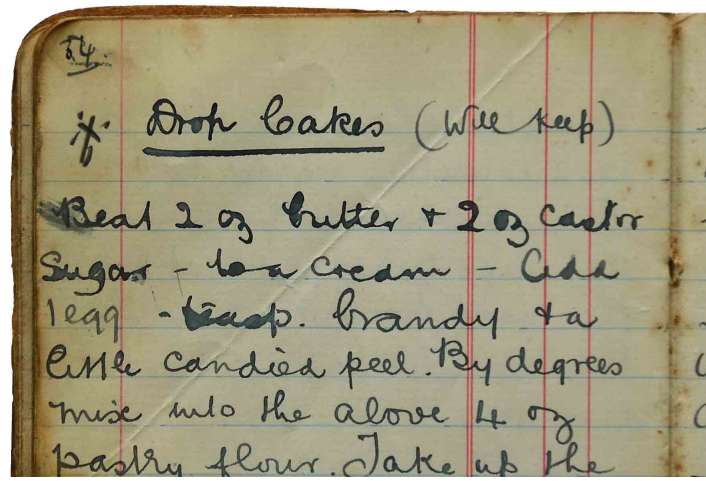 54.
Drop Cakes (Will keep)
Beat 2 oz butter + 2 oz castor
Sugar - to a cream - Add
1 egg - teasp. brandy + a
little candied peel. By degrees
mix into the above 4 oz
pastry flour. Take up the